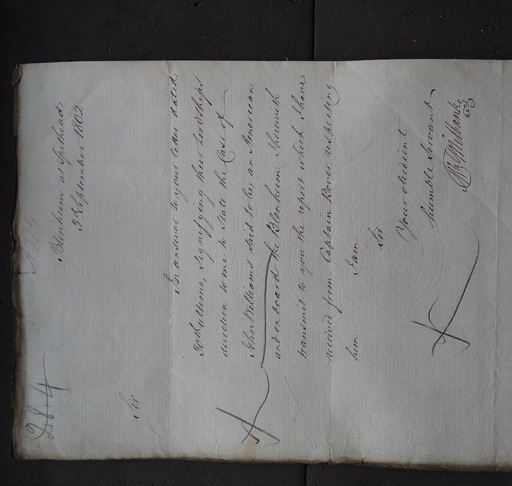 284
Blenheim at Spithead
3d September 1802
Sir
In answer to your letter dated
30th Ultimo, signifying their Lordships
direction to me to state the Case of
John Williams said to be an American
and on board the Blenheim I herewith
transmit to you the report which I have
received from Captain Bover respecting
him. I am
Sir
Your obedient
humble Servant
Milbanke